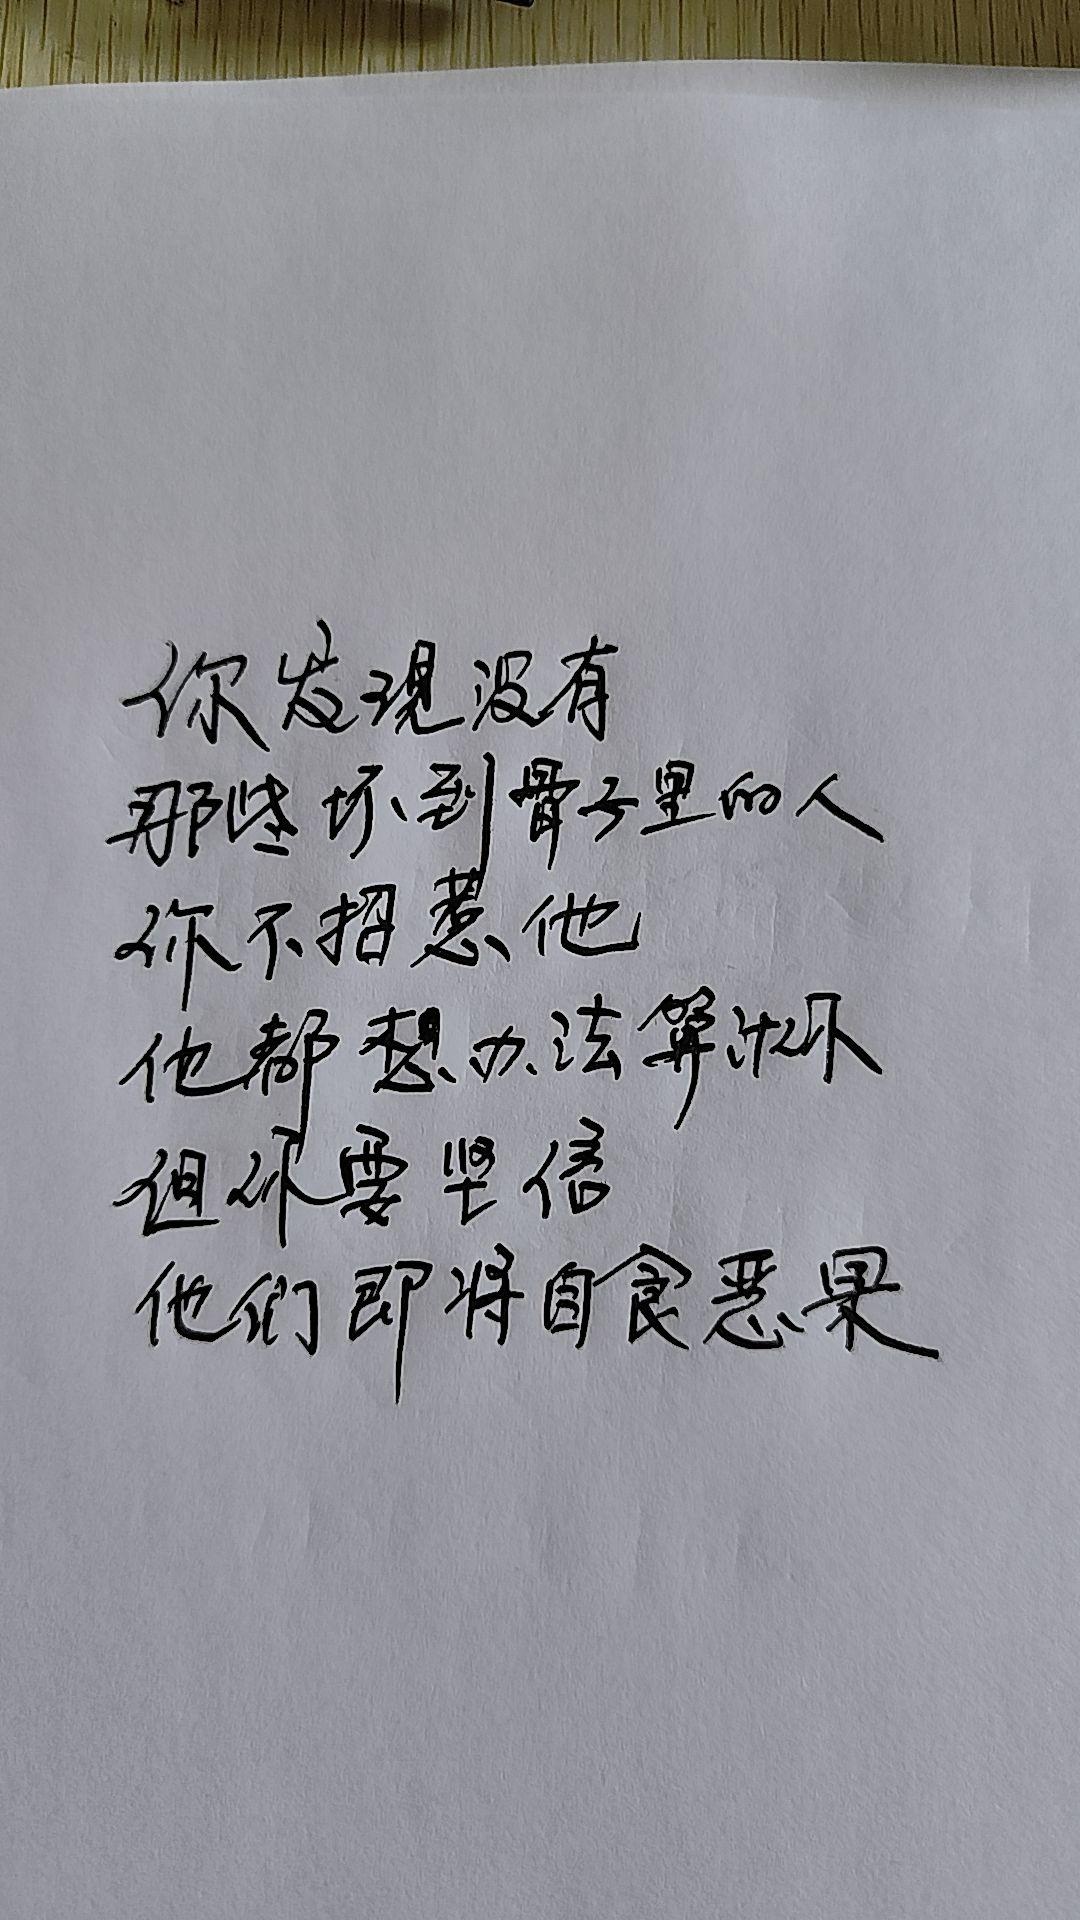 你发现没有
那些坏到骨子里的人
你不招惹他
他都想办法算计你
但你要坚信
他们即将自食恶果